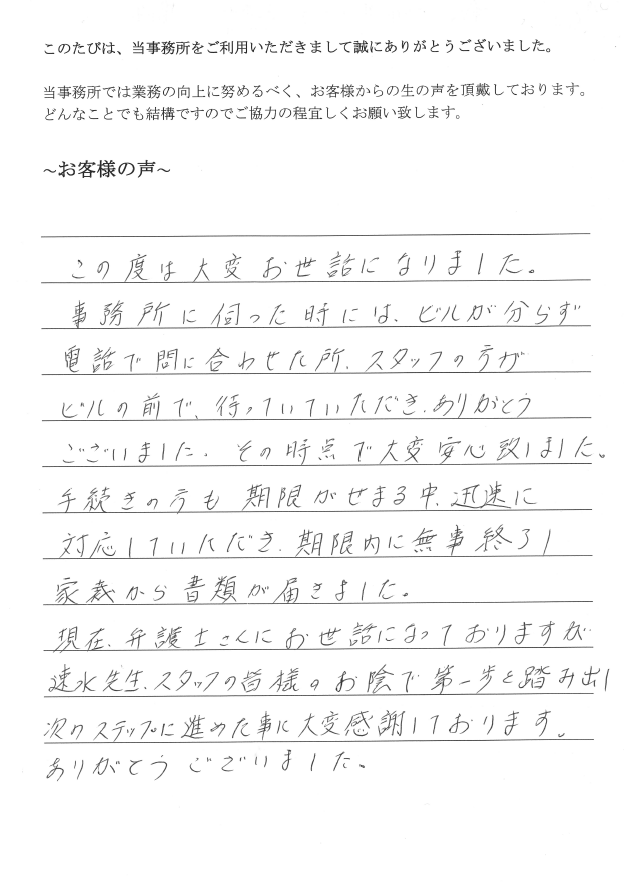 このたびは、当事務所をご利用いただきまして誠にありがとうございました。
当事務所では業務の向上に努めるべく、お客様からの生の声を頂戴しております。
どんなことでも結構ですのでご協力の程宜しくお願い致します。
~お客様の声~
この度は大変お世話になりました。
事務所に伺った時には、ビルが分らず
電話で問に合わせた所、スタッフの方が
ビルの前で、待っていていただき、ありがとう
ございました。その時点で大変安心致しました。
手続きの方も期限がせまる中、迅速に
対応していただき、期限内に無事終了し
家裁から書類が届きました。
現在、弁護士さんにお世話になっておりますが
速水先生、スタッフの皆様のお陰で第一歩を踏み出し
次のステップに進めた事に大変感謝しております。
ありがとうございました。